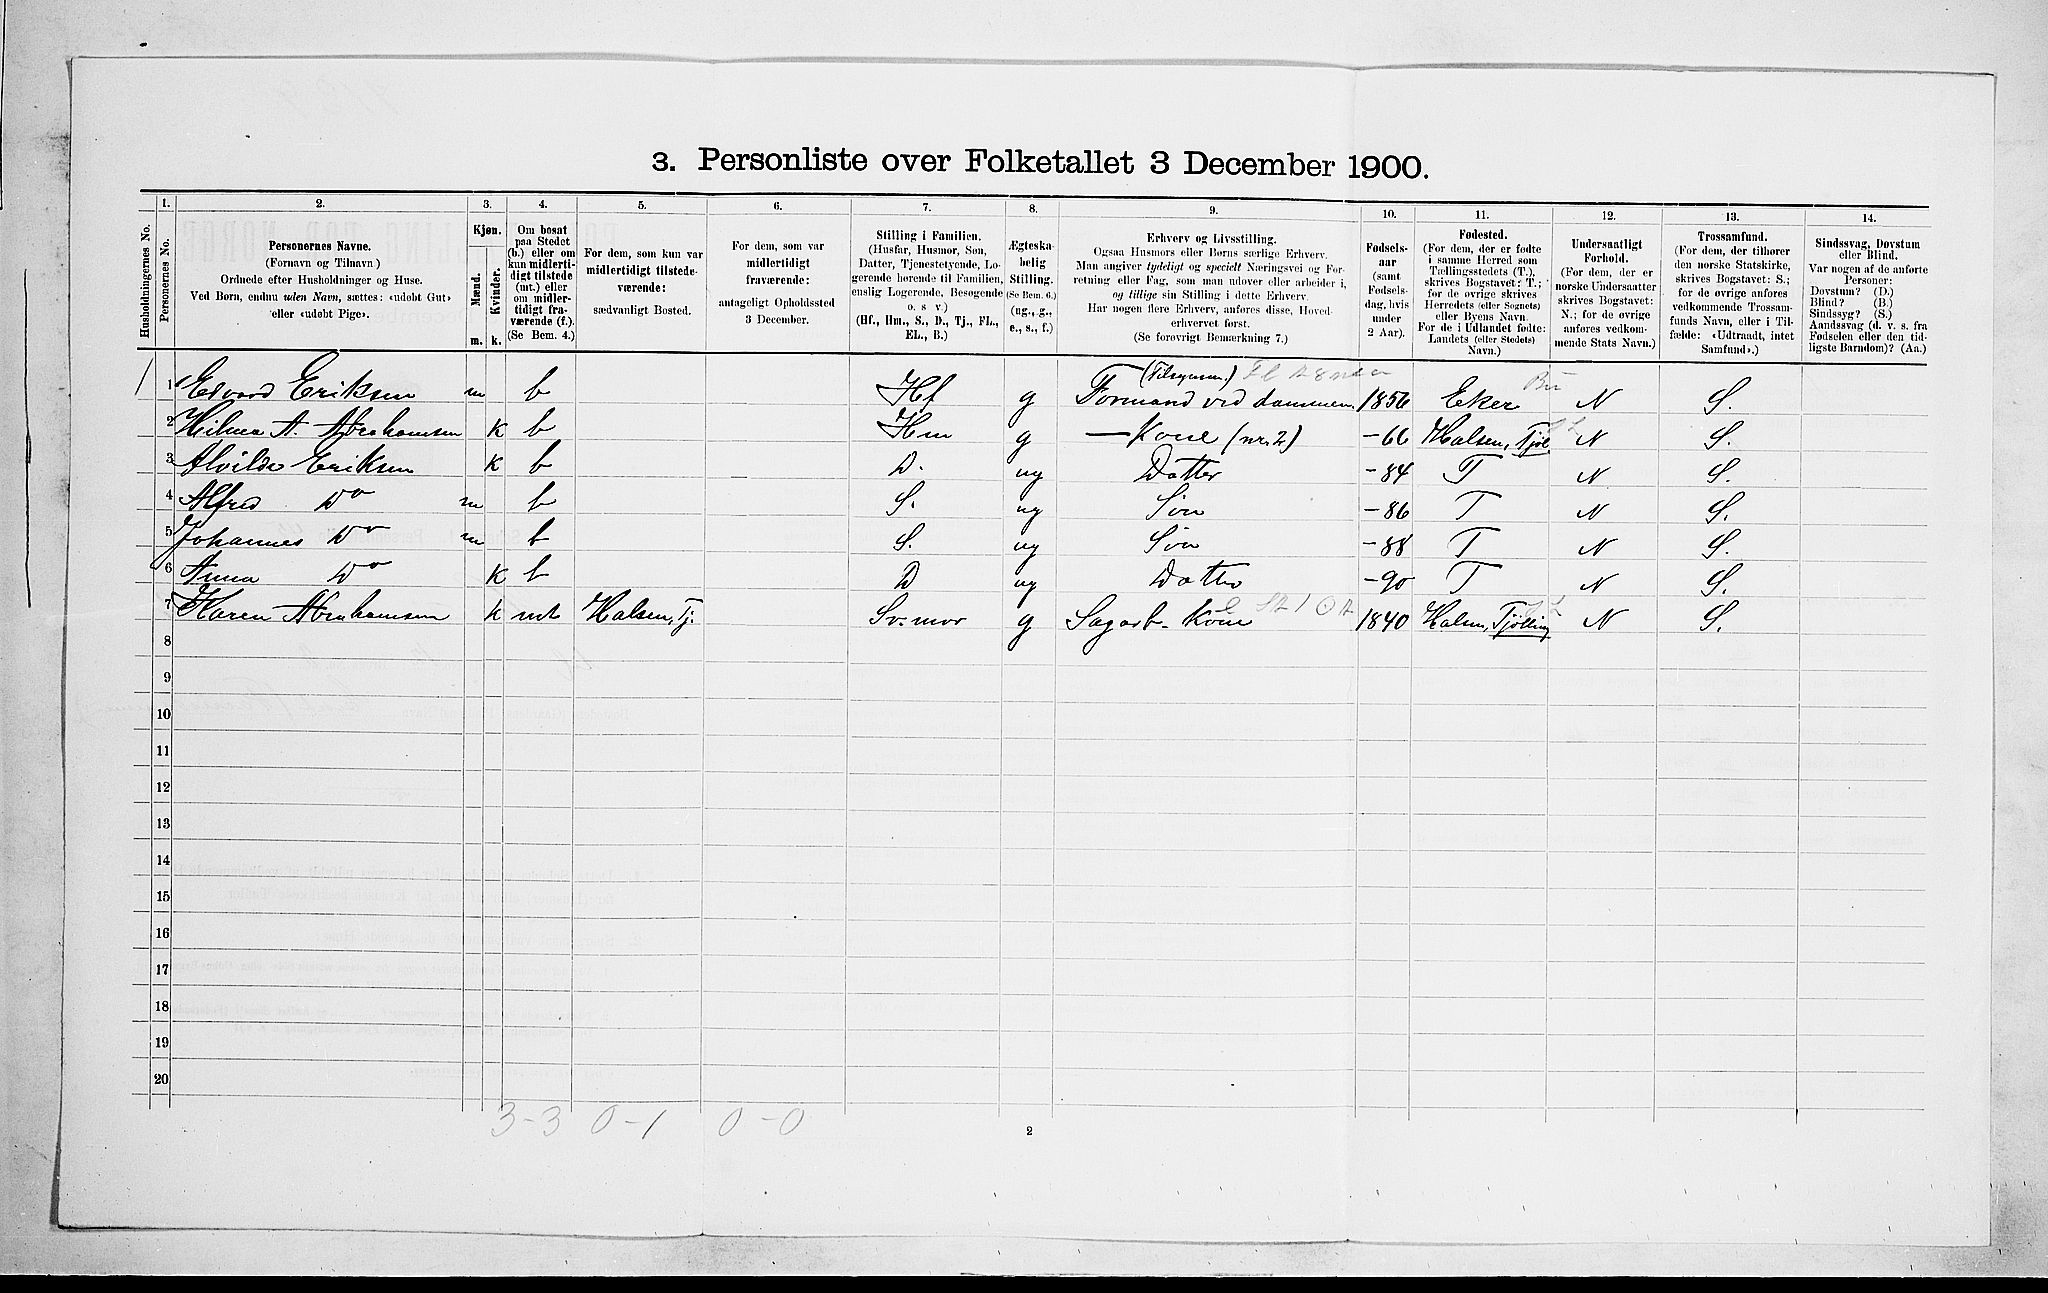 3. Personliste over Folketallet 3 December 1900.
Husholdningernes No.
1.
Personernes No.
2.
Personernes Navne.
(Fornavn og Tilnavn)
Ordnede efter Husholdninger og Huse.
Ved Børn, endnu uden Navn, sættes: «udøbt Gut»
eller «udøbt Pige».
3.
Kjøn.
Mænd.
Kvinder.
m. k.
4.
Om bosat
paa Stedet
(b.) eller om
kun midlerti-
digt tilstede
(mt.) eller
om midler-
tidigt fra-
værende (f.).
(Se Bem. 4.)
5.
For dem, som kun var
midlertidigt tilstede-
værende:
sædvanligt Bosted.
6.
For dem, som var
midlertidigt
fraværende:
antageligt Opholdssted
3 December.
7.
Stilling i Familien.
(Husfar, Husmor, Søn,
Datter, Tjenestetyende, Lo-
gerende hørende til Familien,
enslig Logerende, Besøgende
o. s. v)
(Hf., Hm., S., D., Tj., FL.,
EL., B.)
8.
Ægteska-
belig
Stilling.
(Se Bem. 6.)
(ug., g.,
e., s., f.)
9.
Erhverv og Livsstilling.
Ogsaa Husmors eller Børns særlige Erhverv.
Man angiver tydeligt og specielt Næringsvei og For-
retning eller Fag, som man udøver eller arbeider i,
og tillige sin Stilling i dette Erhverv.
Har nogen flere Erhverv, anføres disse, Hoved-
erhvervet først.
(Se forøvrigt Bemærkning 7.)
10.
Fødsels-
aar
(samt
Fødsels-
dag, hvis
under
2 Aar).
11.
Fødested.
(For dem, der er fødte
i samme Herred som
Tællingsstedets (T.),
skrives Bogstavet: T.;
for de øvrige skrives
Herredets (eller Sognets)
eller Byens Navn.
For de i Udlandet fødte:
Landets (eller Stedets)
Navn.)
12.
Undersaatligt
Forhold.
(For dem, der er
norske Undersaatter
skrives Bogstavet:
N.; for de øvrige
anføres vedkom-
mende Stats Navn.)
13.
Trossamfund.
(For dem, der tilhører
den norske Statskirke,
skrives Bogstavet: S.;
for de øvrige anføres
vedkommende Trossam-
funds Navn, eller i Til-
fælde: «Udtraadt, intet
Samfund».)
14.
Sindssvag, Døvstum
eller Blind.
Var nogen af de anførte
Personer:
Døvstum? (D.)
Blind? (B.)
Sindssyg? (S.)
Aandssvag (d. v. s. fra
Fødselen eller den tid-
ligste Barndom)? (Aa.)
1 1 Edvard Eriksen m b Hf g Formand ved dammen 1856 Eker Bu N S.
2 Hilma A. Abrahamsen k b Hm g — Kone (nr. 2) -66 Halsen, Tjøl. N S.
3 Alvilde Eriksen k b D. ug Datter -84 T N S.
4 Alfred Do m b S. ug Søn -86 T N S.
5 Johannes Do m b S. ug Søn -88 T N S.
6 Anna Do k b D ug Datter -90 T N S.
7 Karen Abrahamsen k mt Halsen, Tj. Sv.mor g Sagarb. Kone 1840 Halsen, Tjølling N S.
8
9
10
11
12
13
14
15
16
17
18
19
20
3-3 0-1 0-0
2